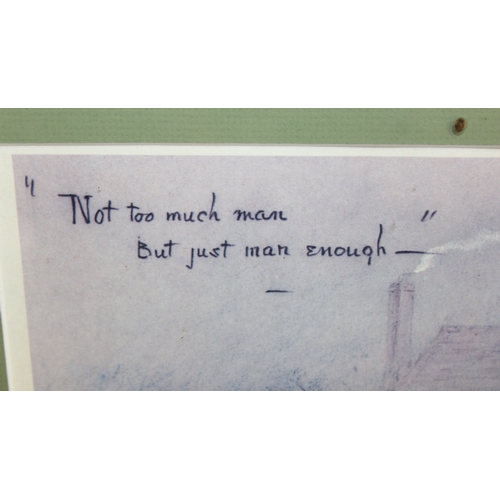 " Not too much man
But just man enough — "
—